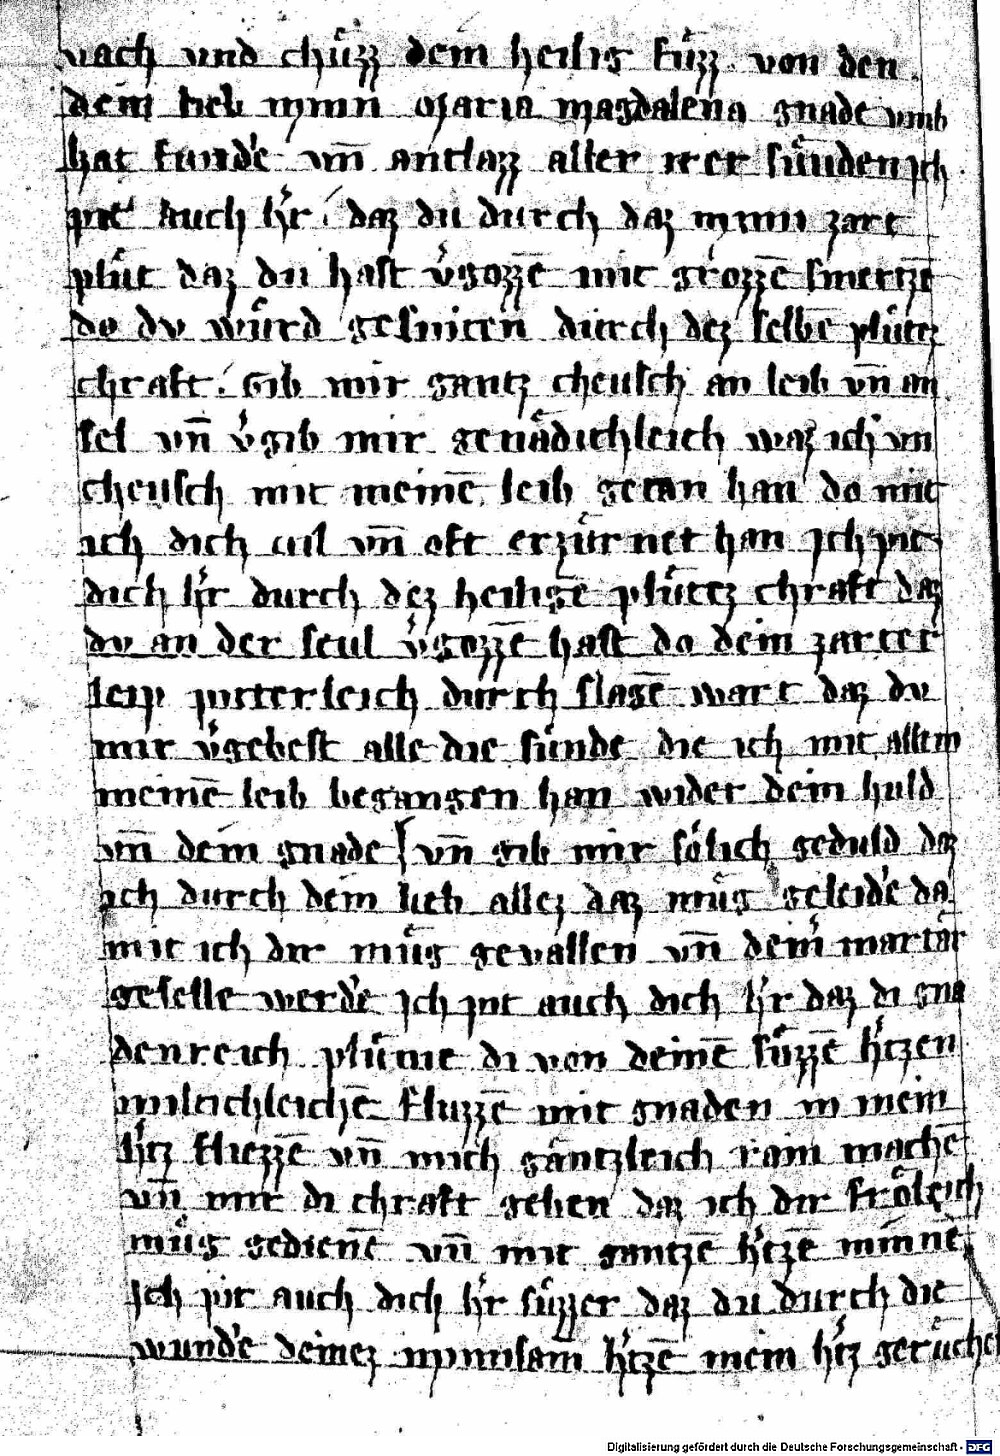 nach vnd chuͤzz dein heilig fuͤzz von den
dein lieb mynn Maria magdalena gnade vmb
hat fund'e vn̄ antlazz aller irer suͤnden ich
pit auch h'r daz du durch daz mynn zart
pluͤt daz du hast v'gozzē mit grozzē smertzē
do du wuͤrd gesniten durch dez selbē pluͤtez
chraft Gib mir gantz cheusch an leib vn̄ an
sel vn̄ v'gib mir genaͤdichleich waz ich vn
cheusch mit meinē leib getan han do mit
ich dich vil vn̄ oft erzuͤrnet han Ich pit
dich h'r durch dez heiligē pluͤtez chraft daz
du an der seul v'gozzē hast do dein zarter
leip pitterleich durch slagē wart daz du
mir v'gebest alle die suͤnde die ich mit allem
meinē leib begangen han wider dein huld
vn̄ dein gnade vn̄ gib mir soͤlich geduld daz
ich durch dein lieb allez daz muͤg geleid'e da
mit ich dir muͤg gevallen vn̄ dein' martaͤr
geselle werd'e Ich pit auch dich h'r daz di gna
denreich pluͤme di von deinē suͤzzē h'tzen
miltichleichē fluzzē mit gnaden in mein
h'tz fliezzē vn̄ mich gaͤntzleich rain machē
vn̄ mir di chraft geben daz ich dir froͤleich
muͤg gedienē vn̄ mit gantzē h'tzē minnē
Ich pit auch dich h'r suͤzzer daz du durch die
wund'e deinez mynnsam h'tzē mein h'tz geruͤchest
Digitalisierung gefördert durch die Deutsche Forschungsgemeinschaft - DFG